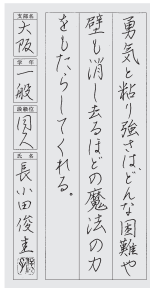 勇気と粘り強さは、どんな困難や
壁も消し去るほどの魔法の力
をもたらしてくれる。
支部名
大阪
学年
一般
段級位
同人
氏名
長小田俊圭